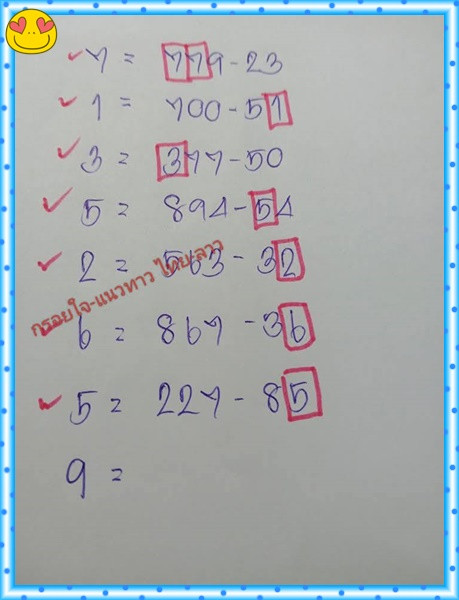 7 = 779-23
1 = 700-51
3 = 377-50
5 = 894-54
2 = 563-32
กรอยใจ-แนวทาง ไทย-ลาว
6 = 867-36
5 = 227-85
9 =